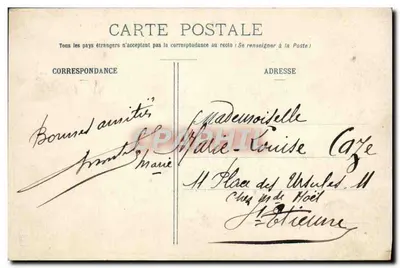 CARTE POSTALE
Tous les pays étrangers n'acceptent pas la correspondance au recto (Se renseigner à la Poste)
CORRESPONDANCE
ADRESSE
Bonnes amitiés
Marie
Mademoiselle
Marie-Louise Caze
11 Place des Ursules 11
Chez Mde Noël
St Etienne